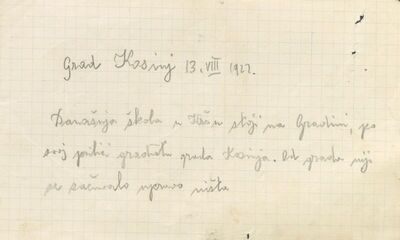 Grad Kosinj 13. VIII 1927.
Današnja škola u stoji na Gradini, po
svoj prilici gradištu grada Kosinja. Od grada nije
se sačuvalo upravo ništa